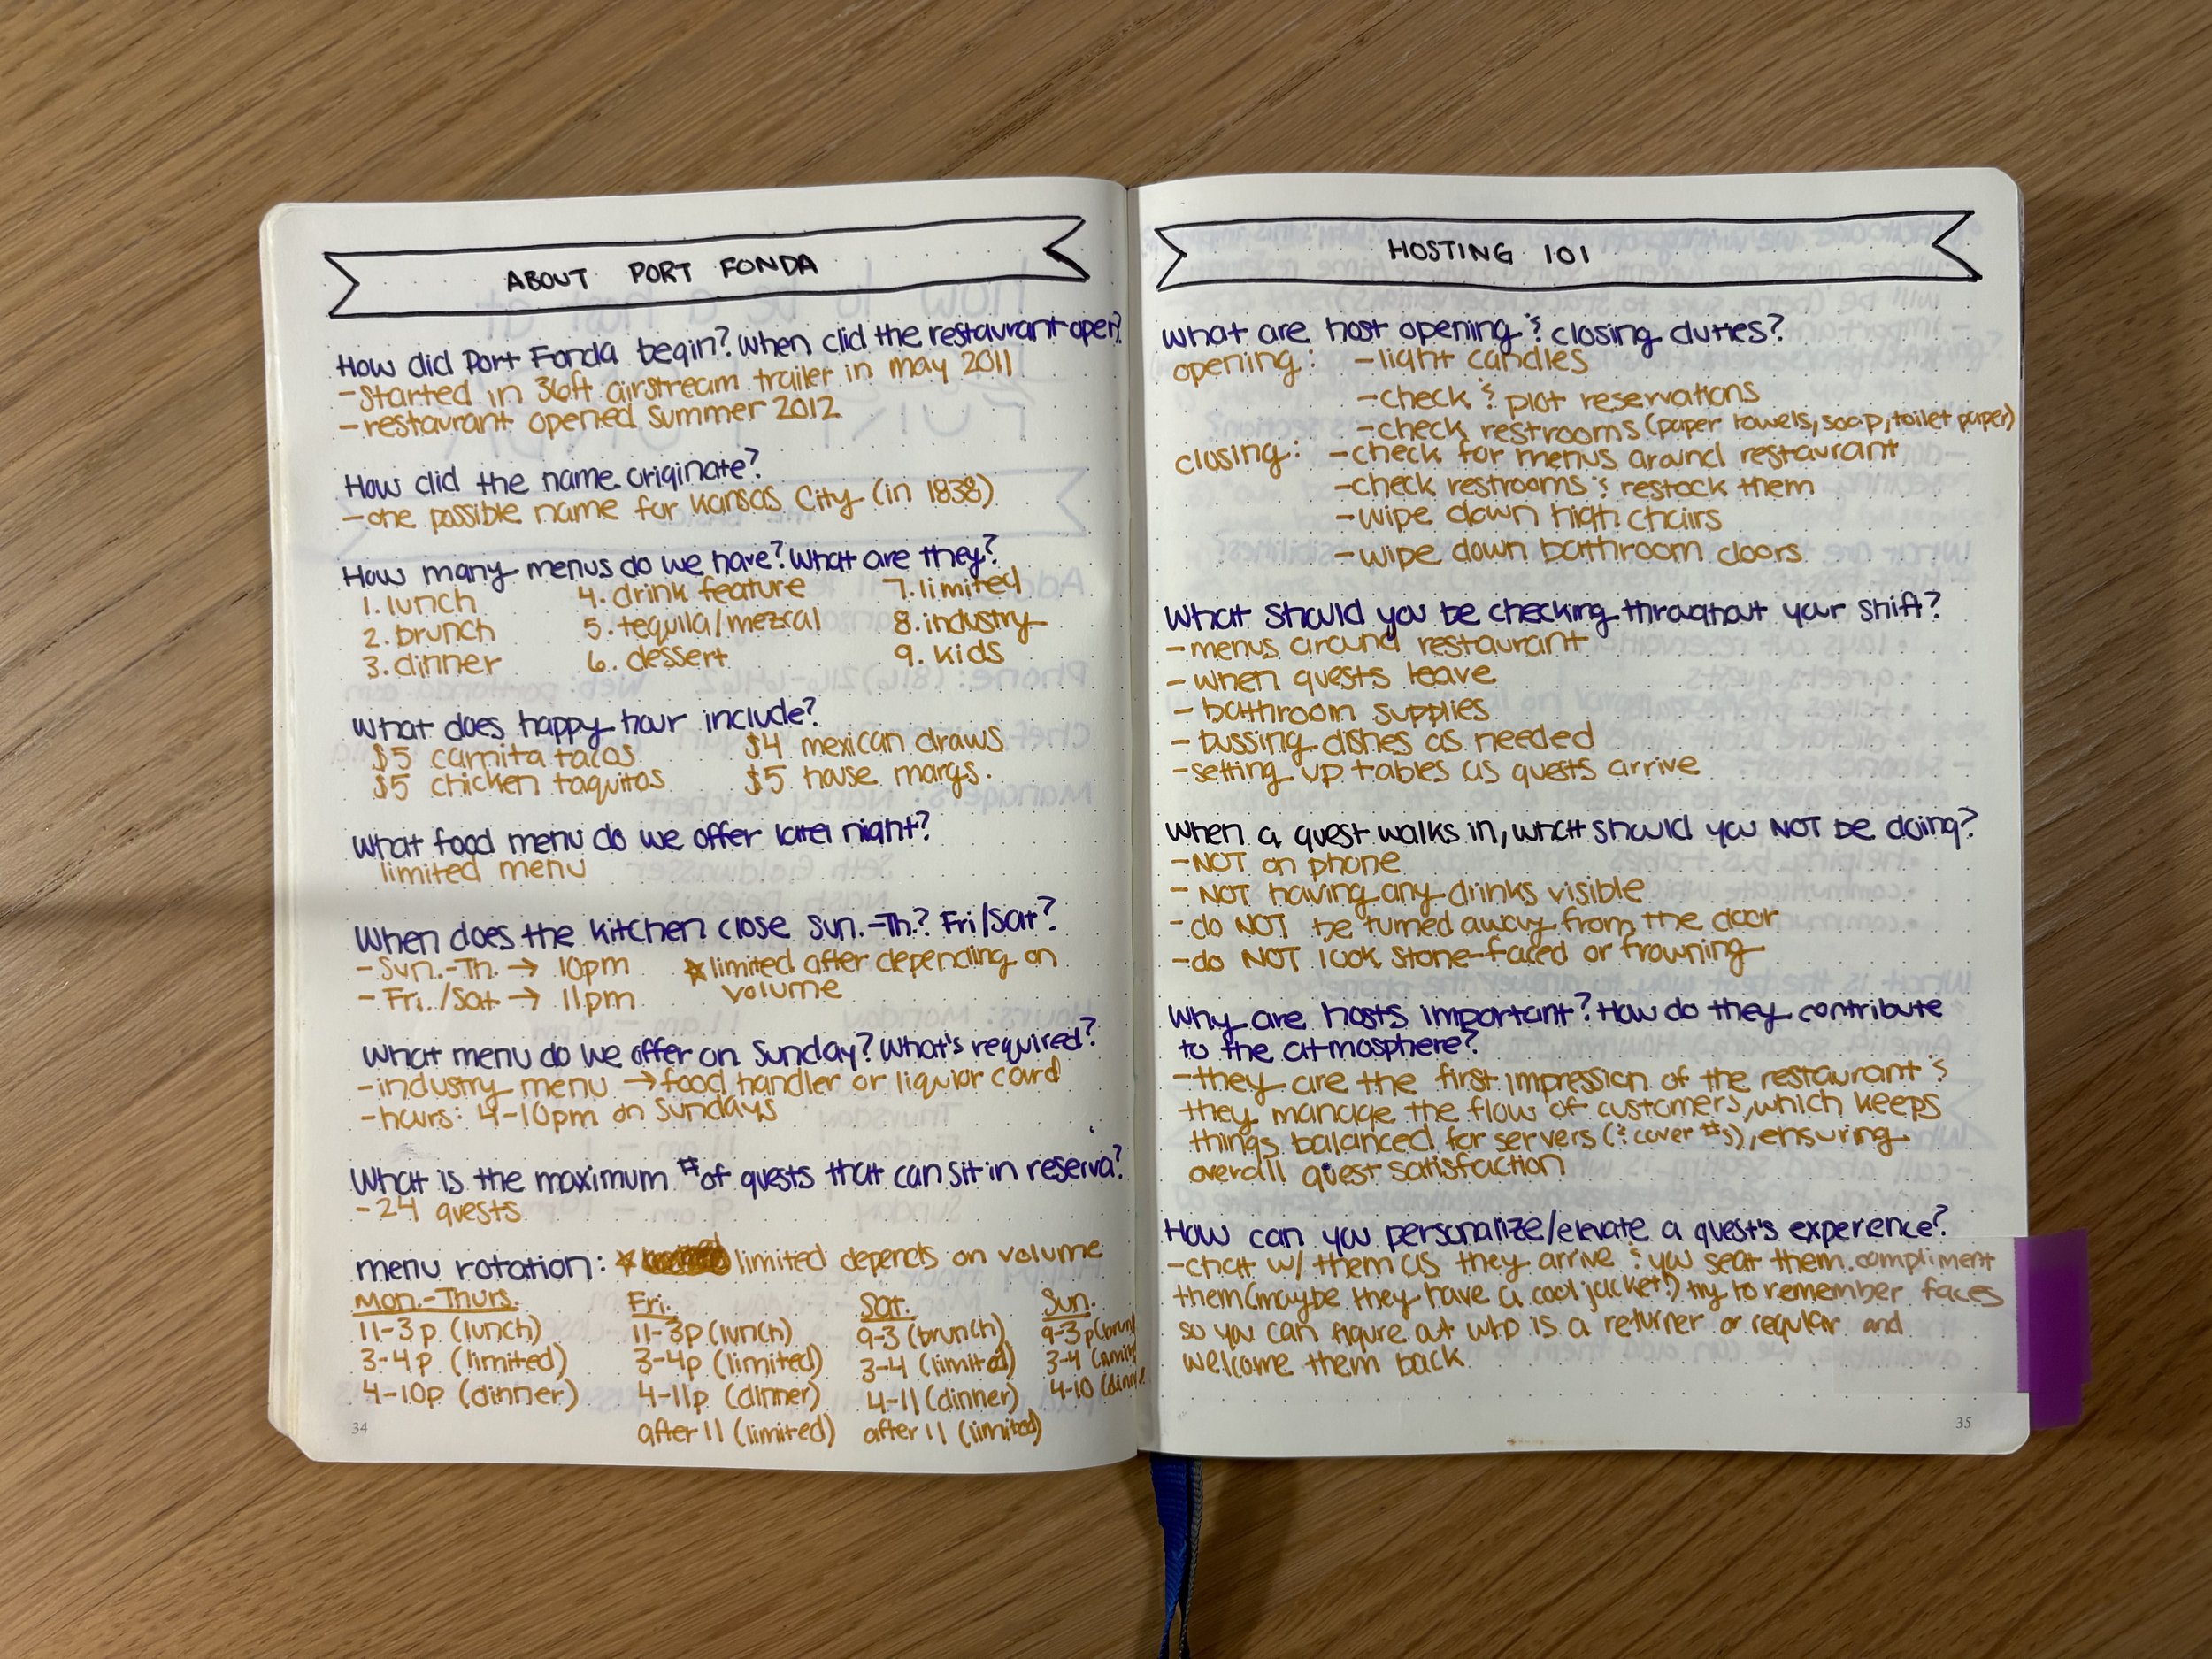 ABOUT PORT FONDA
How did Port Fonda begin? When did the restaurant open?
- started in 36ft airstream trailer in may 2011
- restaurant opened summer 2012
How did the name originate?
- one possible name for Kansas City (in 1838)
How many menus do we have? What are they?
1. lunch 4. drink feature 7. limited
2. brunch 5. tequila/mezcal 8. industry
3. dinner 6. dessert 9. kids
What does happy hour include?
$5 carnita tacos $4 mexican draws
$5 chicken taquitos $5 house margs.
What food menu do we offer late night?
limited menu
When does the kitchen close Sun.-Th.? Fri/Sat?
- Sun.-Th. → 10pm ☆ limited after depending on
- Fri./Sat → 11pm volume
What menu do we offer on Sunday? What's required?
- industry menu → food handler or liquor card
- hours: 4-10pm on Sundays
What is the maximum # of guests that can sit in reserva?
- 24 guests
menu rotation: ☆ limited depends on volume
Mon.-Thurs. Fri. Sat. Sun.
11-3p (lunch) 11-3p (lunch) 9-3 (brunch) 9-3p (brun
3-4p (limited) 3-4p (limited) 3-4 (limited) 3-4 (limite
4-10p (dinner) 4-11p (dinner) 4-11 (dinner) 4-10 (dinne
after 11 (limited) after 11 (limited)
34
HOSTING 101
What are host opening & closing duties?
opening: - light candles
- check & plot reservations
- check restrooms (paper towels, soap, toilet paper)
closing: - check for menus around restaurant
- check restrooms & restock them
- wipe down high chairs
- wipe down bathroom doors
What should you be checking throughout your shift?
- menus around restaurant
- when guests leave
- bathroom supplies
- bussing dishes as needed
- setting up tables as guests arrive
When a guest walks in, what should you NOT be doing?
- NOT on phone
- NOT having any drinks visible
- do NOT be turned away from the door
- do NOT look stone-faced or frowning
Why are hosts important? How do they contribute
to the atmosphere?
- they are the first impression of the restaurant &
they manage the flow of customers, which keeps
things balanced for servers (& cover #s), ensuring
overall guest satisfaction
How can you personalize/elevate a guest's experience?
- chat w/ them as they arrive & you seat them, compliment
them (maybe they have a cool jacket!) try to remember faces
so you can figure out who is a returner or regular and
welcome them back
35